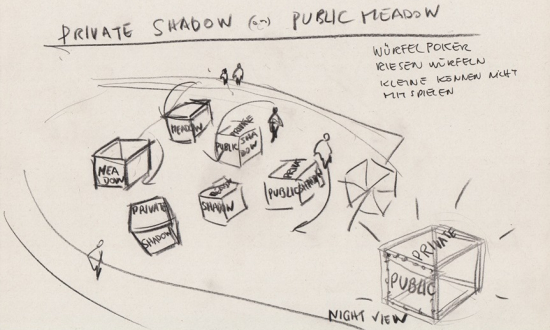 PRIVATE SHADOW (on) PUBLIC MEADOW
WÜRFELPOKER
RIESEN WÜRFELN
KLEINE KÖNNEN NICHT
MITSPIELEN
MEADOW
PRIVATE
PUBLIC
SHA
DOW
MEA
DOW
PUBLIC
SHADOW
SHADOW
PRIVATE
SHADOW
PRIVATE
PUBLIC
NIGHT VIEW